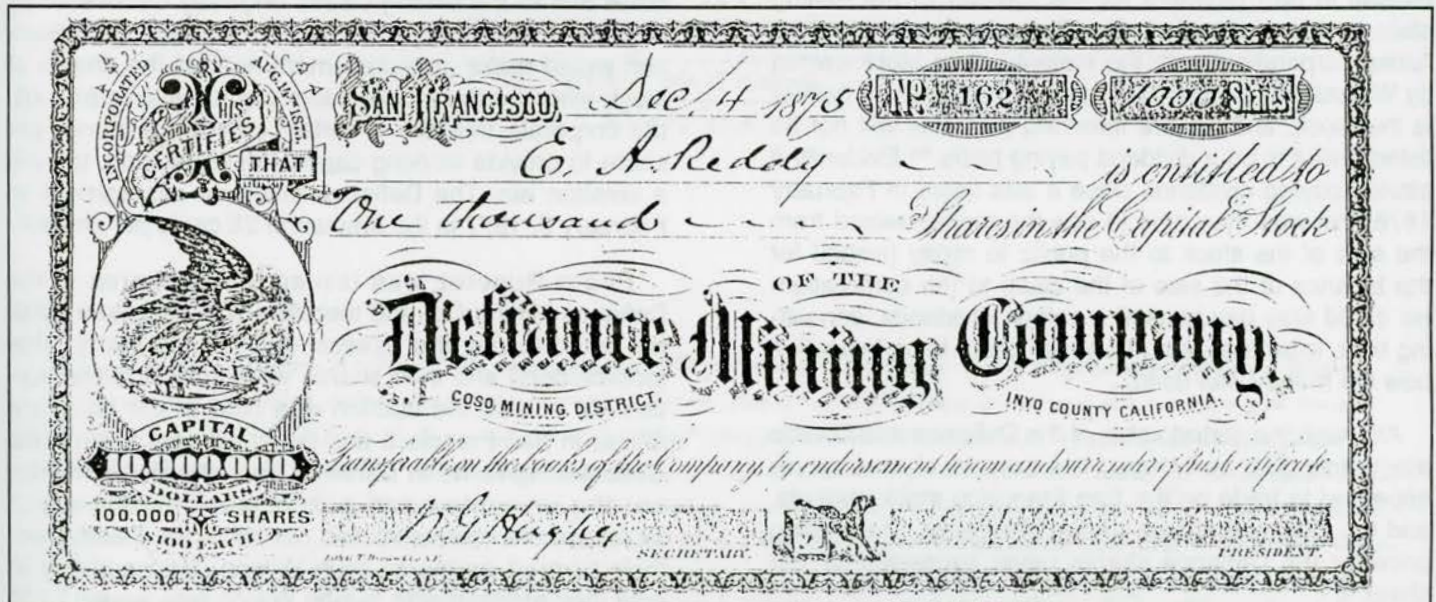 INCORPORATED AUG. 12TH 1875
THIS
CERTIFIES
THAT
SAN FRANCISCO, Dec 14 1875 No 162 1000 SHS
E. A. Reddy is entitled to
One thousand Shares in the Capital Stock
OF THE
Defiance Mining Company,
COSO MINING DISTRICT, INYO COUNTY CALIFORNIA.
CAPITAL
10,000,000
DOLLARS
100.000 SHARES
$100 EACH
Transferable on the books of the Company, by endorsement hereon and surrender of this Certificate
Hughes SECRETARY. PRESIDENT.